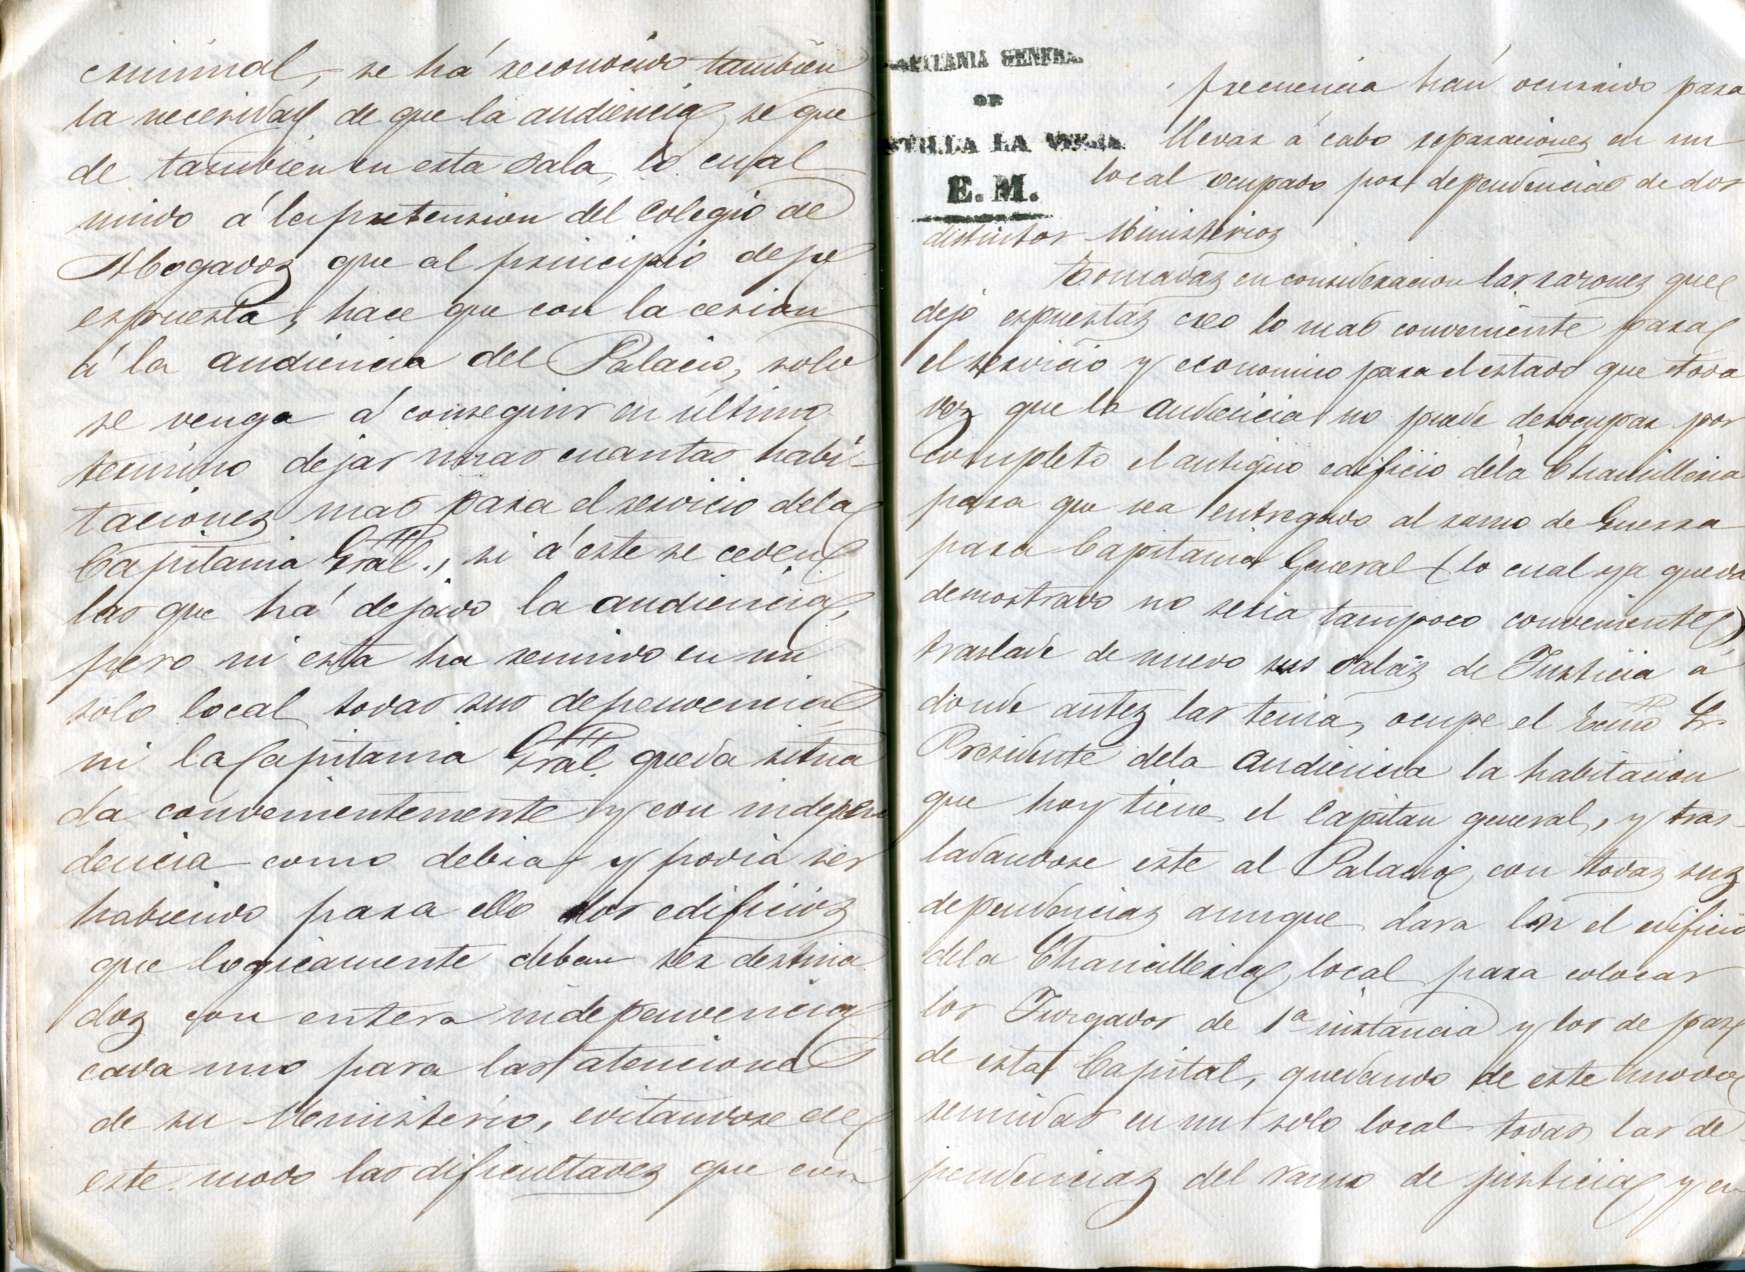 criminal, se há reconocido tambien
la necesidad de que la audiencia, se que
de tambien en esta Sala, lo cual
unido á la pretension del Colegio de
Abogados que al principio dejo
espuesta, hace que con la cesion
á la audiencia del Palacio, solo
se venga á conseguir en último
término dejar unas cuantas habi-
taciones mas para el servicio dela
Capitania Gral., si á este se ceden
las que há dejado la audiencia,
pero ni esta ha reunido en un
solo local todas sus dependencias
ni la Capitania Gral. queda situa
da convenientemente y con indepen
dencia como debia y podia ser
habiendo para ello dos edificios
que logicamente deban ser destina
dos con entera independencia
cada uno para las atenciones
de su Ministerio, evitandose de
este modo las dificultades que con
CAPITANIA GENERAL
DE
CASTILLA LA VIEJA
E. M.
frecuencia han ocurrido para
llevar á cabo reparaciones en un
local ocupado por dependencias de dos
distintos Ministerios
Tomadas en consideracion las razones que
dejo espuestas creo lo mas conveniente para
el servicio y economico para el estado que toda
vez que la audiencia no puede desocupar por
completo el antiguo edificio dela Chancilleria
para que sea entregado al ramo de Guerra
para Capitania General (lo cual ya queda
demostrado no seria tampoco conveniente)
traslade de nuevo sus Salas de Justicia á
donde antes las tenia, ocupe el Excmo Sr.
Presidente dela audiencia la habitacion
que hoy tiene el Capitan general, y tras-
ladandose este al Palacio, con todas sus
dependencias aunque dara en el edificio
dela Chancilleria, local para colocar
los Juzgados de 1ª instancia y los de paz
de esta Capital, quedando de este modo
reunidas en un solo local todas las de
pendencias del ramo de justicia, y en